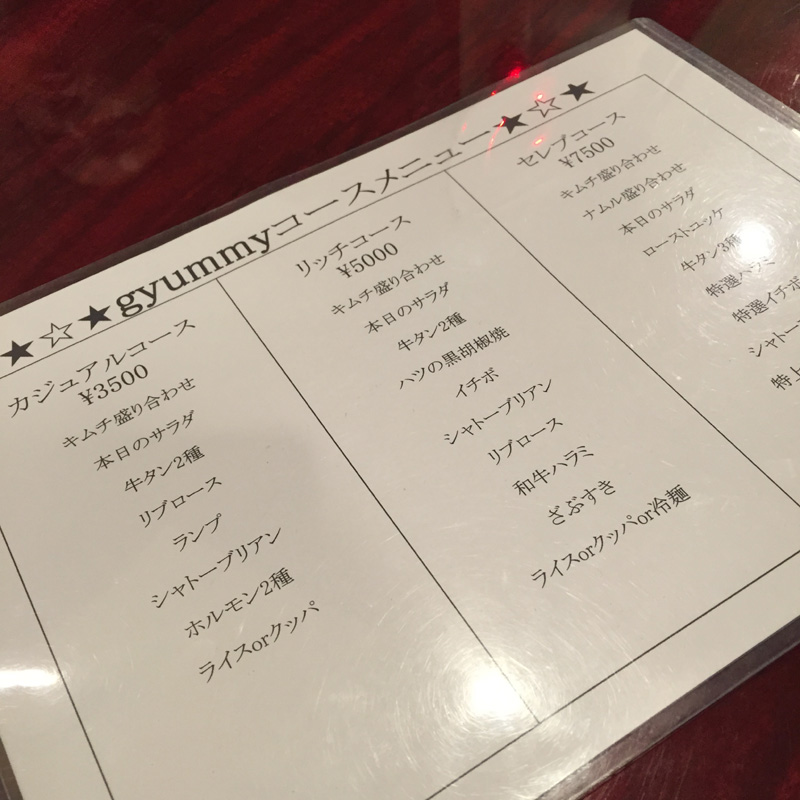 ★☆★gyummyコースメニュー★☆★
カジュアルコース
¥3500
キムチ盛り合わせ
本日のサラダ
牛タン2種
リブロース
ランプ
シャトーブリアン
ホルモン2種
ライスorクッパ
リッチコース
¥5000
キムチ盛り合わせ
本日のサラダ
牛タン2種
ハツの黒胡椒焼
イチボ
シャトーブリアン
リブロース
和牛ハラミ
ざぶすき
ライスorクッパor冷麺
セレブコース
¥7500
キムチ盛り合わせ
ナムル盛り合わせ
本日のサラダ
ローストユッケ
牛タン3種
特選ハラミ
特選イチボ
シャトー
特上